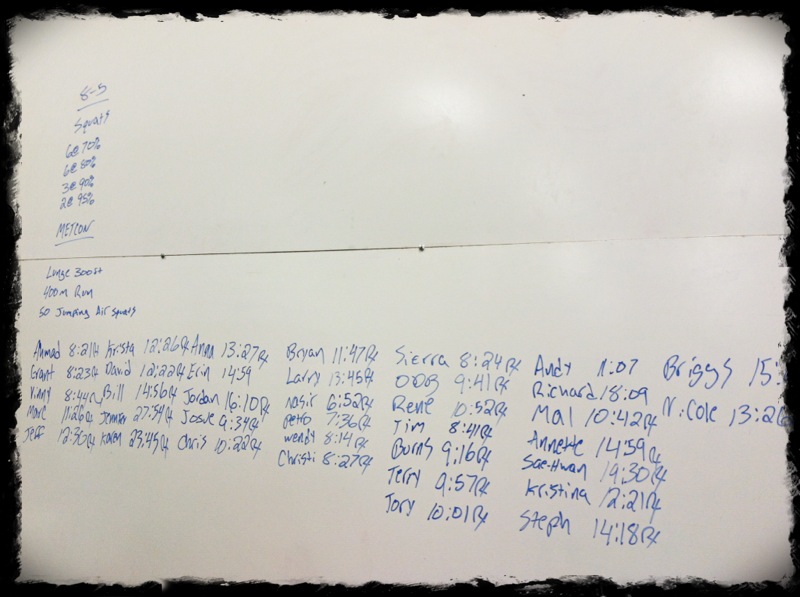 8-5
Squats
6@70%
6@80%
3@90%
2@95%
METCON
Lunge 300ft
400m Run
50 Jumping Air Squats
Ahmad 8:21Rx Krista 12:26Rx Anna 13:27Rx
Grant 8:23Rx David 12:22Rx Erin 14:59
Vinny 8:44Rx Bill 14:56Rx Jordan 16:10Rx
Marc 11:26Rx Jennifer 27:54Rx Josue 9:34Rx
Jeff 12:30Rx Karen 23:45Rx Chris 10:22Rx
Bryan 11:47Rx
Larry 13:45Rx
nasir 6:52Rx
petro 7:36Rx
wendy 8:14Rx
Christi 8:27Rx
Sierra 8:24Rx
ODB 9:41Rx
René 10:52Rx
Tim 8:41Rx
Burns 9:16Rx
Terry 9:57Rx
Jory 10:01Rx
Andy 11:07
Richard 18:09
Mal 10:42Rx
Annette 14:59Rx
Sae-Hwan 19:30Rx
Kristina 12:21Rx
Steph 14:18Rx
Briggs 15:
N. Cole 13:26